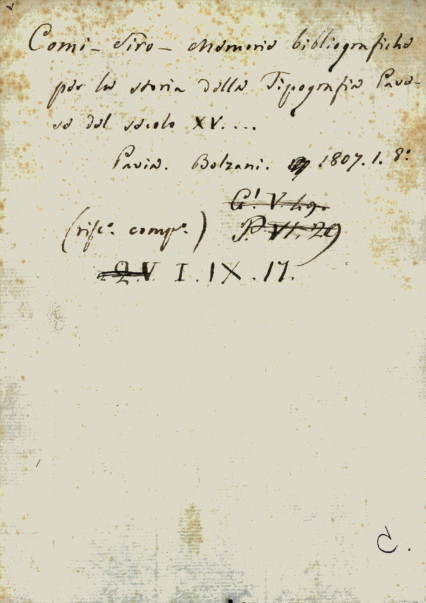 Comi - Siro - Memorie bibliografiche
per la storia della Tipografia Pave-
se del secolo XV....
Pavia. Bolzani. 1807. 1. 8º
G! V. 49.
(risc.º comp.º) P. VI. 29
Q. V I. IX. 17.
C.